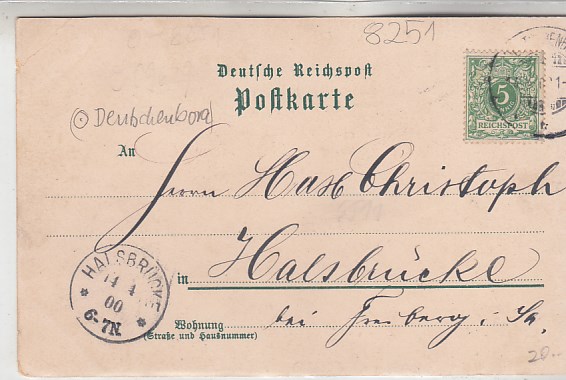 8251
Deutsche Reichspost
Postkarte
5
REICHSPOST
Deutschenbora
An
Herrn Max Christoph
HALSBRÜCKE
14 4
00
6-7N.
in Halsbrücke
Wohnung
(Straße und Hausnummer)
bei Freiberg i. Sa.
20.-